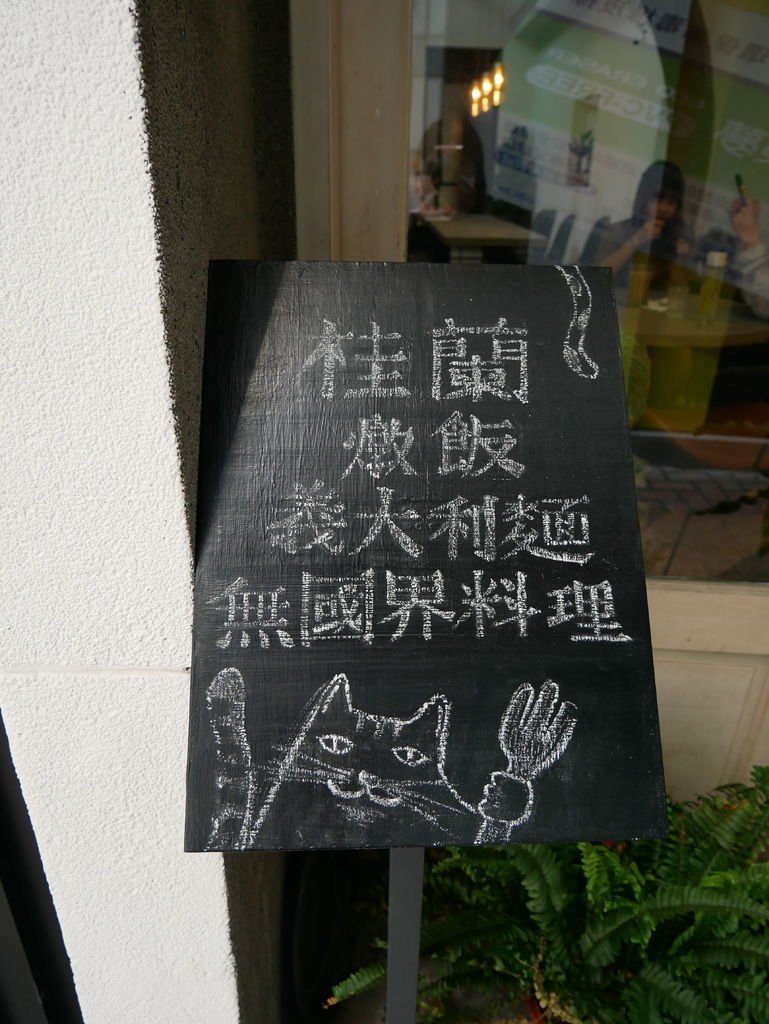 桂蘭
燉飯
義大利麵
無國界料理
ERASER